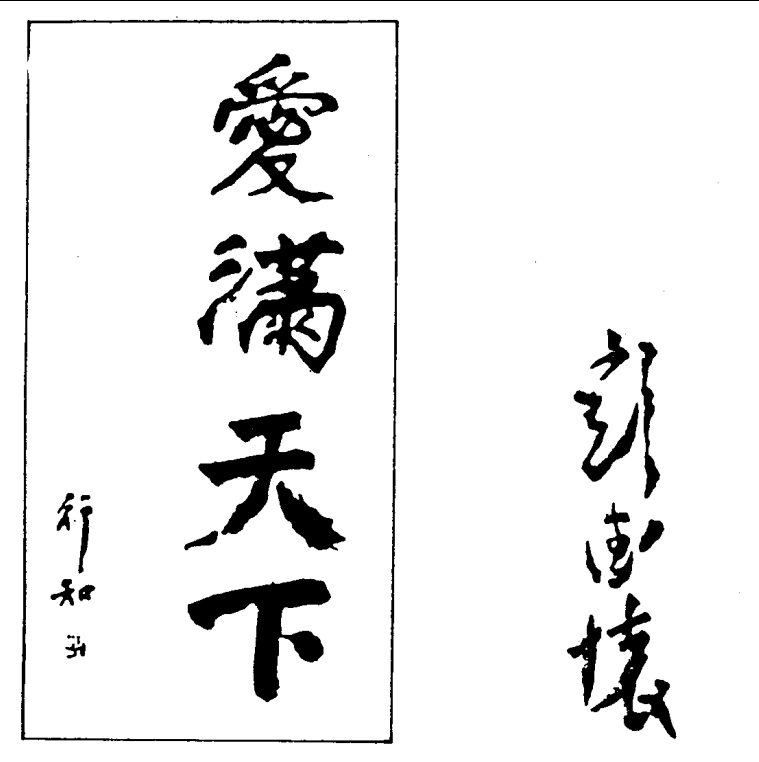 愛滿天下
行知
彭德懷